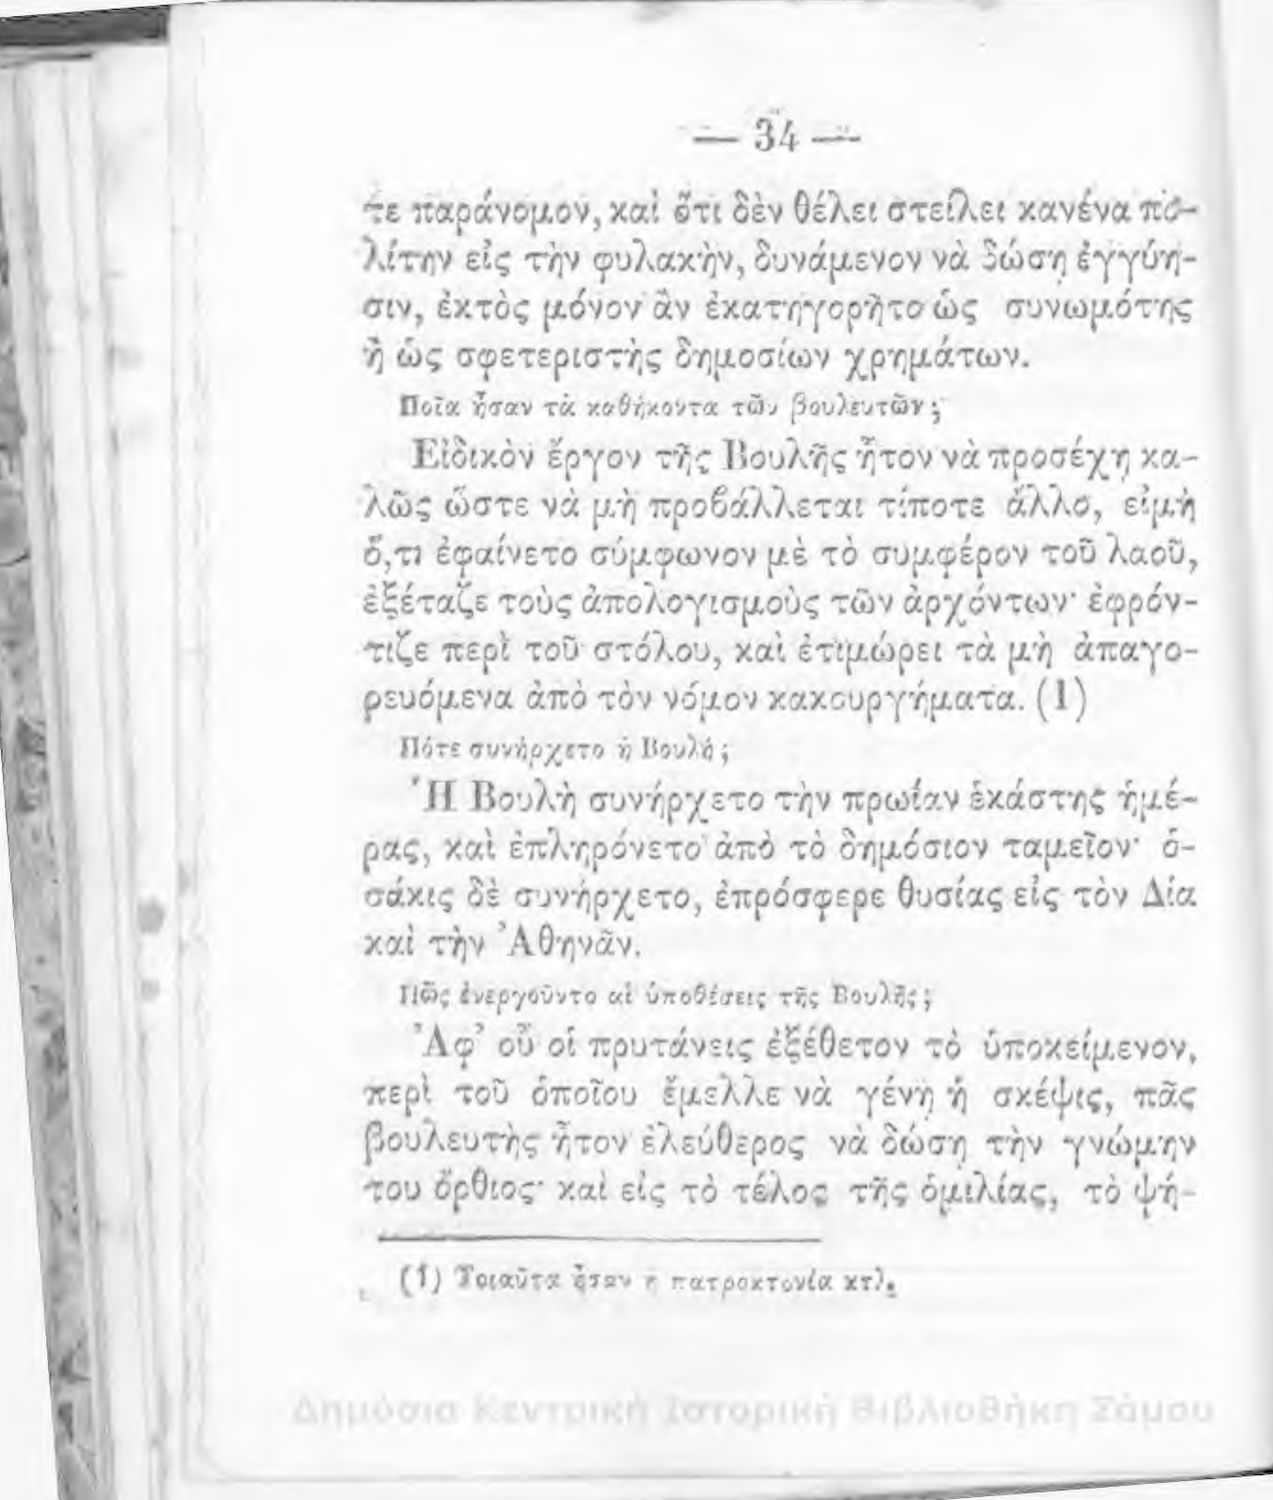 — 34 —
τε παράνομον, καὶ ὅτι δὲν θέλει στείλει κανένα πο-
λίτην εἰς τὴν φυλακὴν, δυνάμενον νὰ δώσῃ ἐγγύη-
σιν, ἐκτὸς μόνον ἂν ἐκατηγορῆτο ὡς συνωμότης
ἢ ὡς σφετεριστὴς δημοσίων χρημάτων.
Ποῖα ἦσαν τὰ καθήκοντα τῶν βουλευτῶν;
Εἰδικὸν ἔργον τῆς Βουλῆς ἦτον νὰ προσέχῃ κα-
λῶς ὥστε νὰ μὴ προβάλλεται τίποτε ἄλλο, εἰμὴ
ὅ,τι ἐφαίνετο σύμφωνον μὲ τὸ συμφέρον τοῦ λαοῦ,
ἐξέταζε τοὺς ἀπολογισμοὺς τῶν ἀρχόντων· ἐφρόν-
τιζε περὶ τοῦ στόλου, καὶ ἐτιμώρει τὰ μὴ ἀπαγο-
ρευόμενα ἀπὸ τὸν νόμον κακουργήματα. (1)
Πότε συνήρχετο ἡ Βουλή;
Ἡ Βουλὴ συνήρχετο τὴν πρωίαν ἑκάστης ἡμέ-
ρας, καὶ ἐπληρόνετο ἀπὸ τὸ δημόσιον ταμεῖον· ὁ-
σάκις δὲ συνήρχετο, ἐπρόσφερε θυσίας εἰς τὸν Δία
καὶ τὴν Ἀθηνᾶν.
Πῶς ἐνεργοῦντο αἱ ὑποθέσεις τῆς Βουλῆς;
Ἀφ’ οὗ οἱ πρυτάνεις ἐξέθετον τὸ ὑποκείμενον,
περὶ τοῦ ὁποῖου ἔμελλε νὰ γένῃ ἡ σκέψις, πᾶς
βουλευτὴς ἦτον ἐλεύθερος νὰ δώσῃ τὴν γνώμην
του ὄρθιος· καὶ εἰς τὸ τέλος τῆς ὁμιλίας, τὸ ψή-
(1) Τοιαῦτα ἦσαν ἡ πατροκτονία κτλ.
Δημόσια Κεντρική Ιστορική Βιβλιοθήκη Σάμου